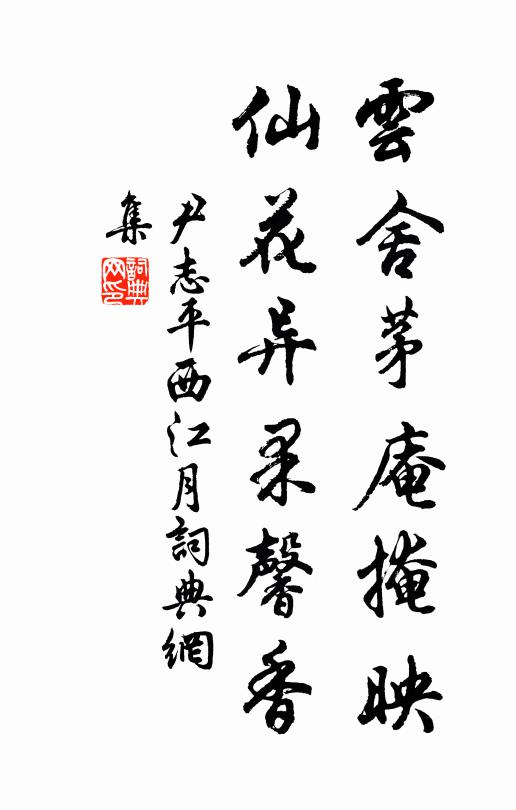 雲舍茅庵掩映
仙花异果馨香
尹志平西江月詞典網
集
詞典
网印